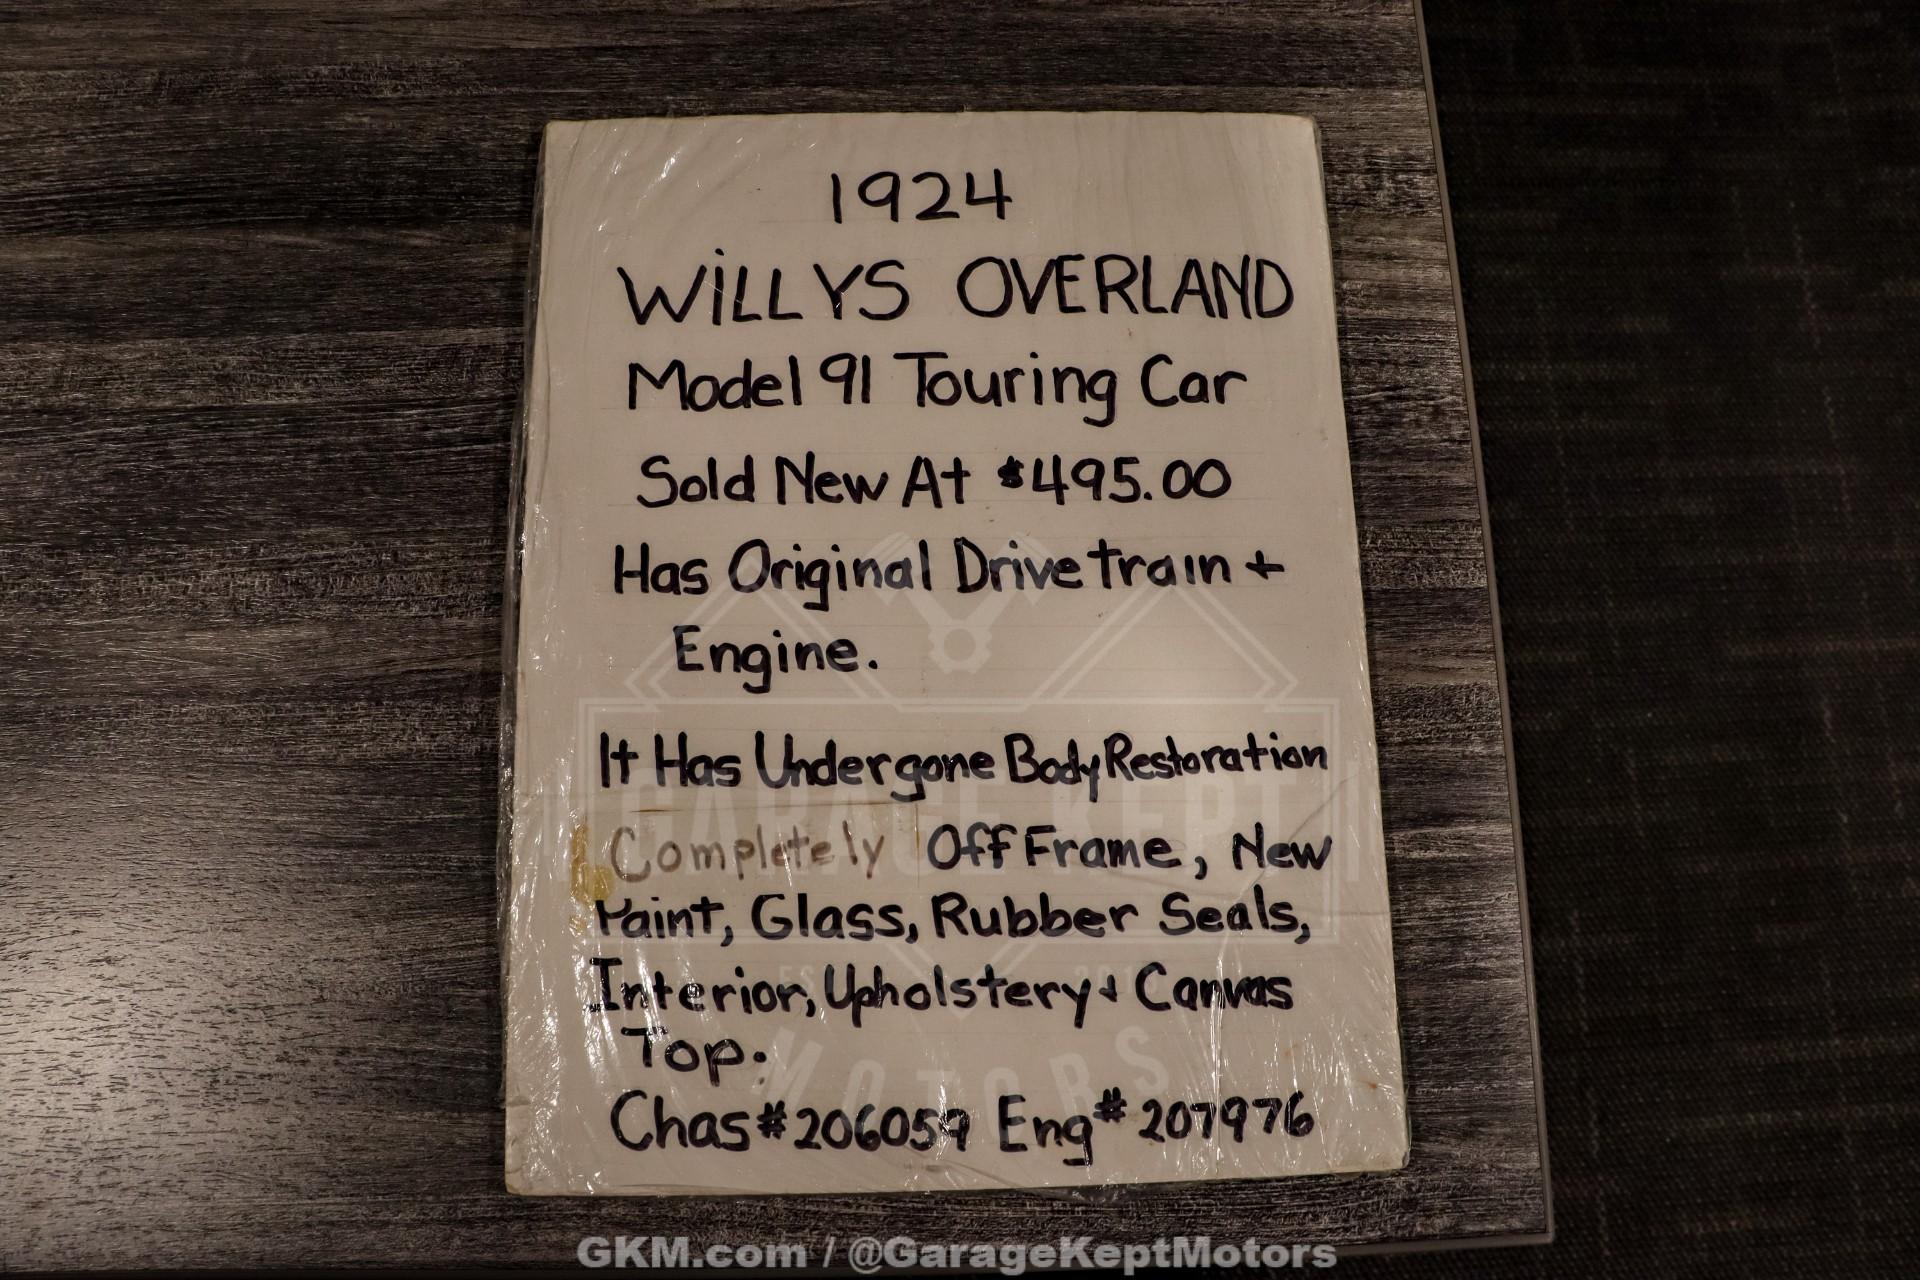 1924
WiLLYS OVERLAND
Model 91 Touring Car
Sold New At $495.00
Has Original Drivetrain +
Engine.
It Has Undergone Body Restoration
Completely Off Frame, New
Paint, Glass, Rubber Seals,
Interior, Upholstery + Canvas
Top.
Chas# 206059 Eng# 207976
GARAGE KEPT
MOTORS
GKM.com / @GarageKeptMotors